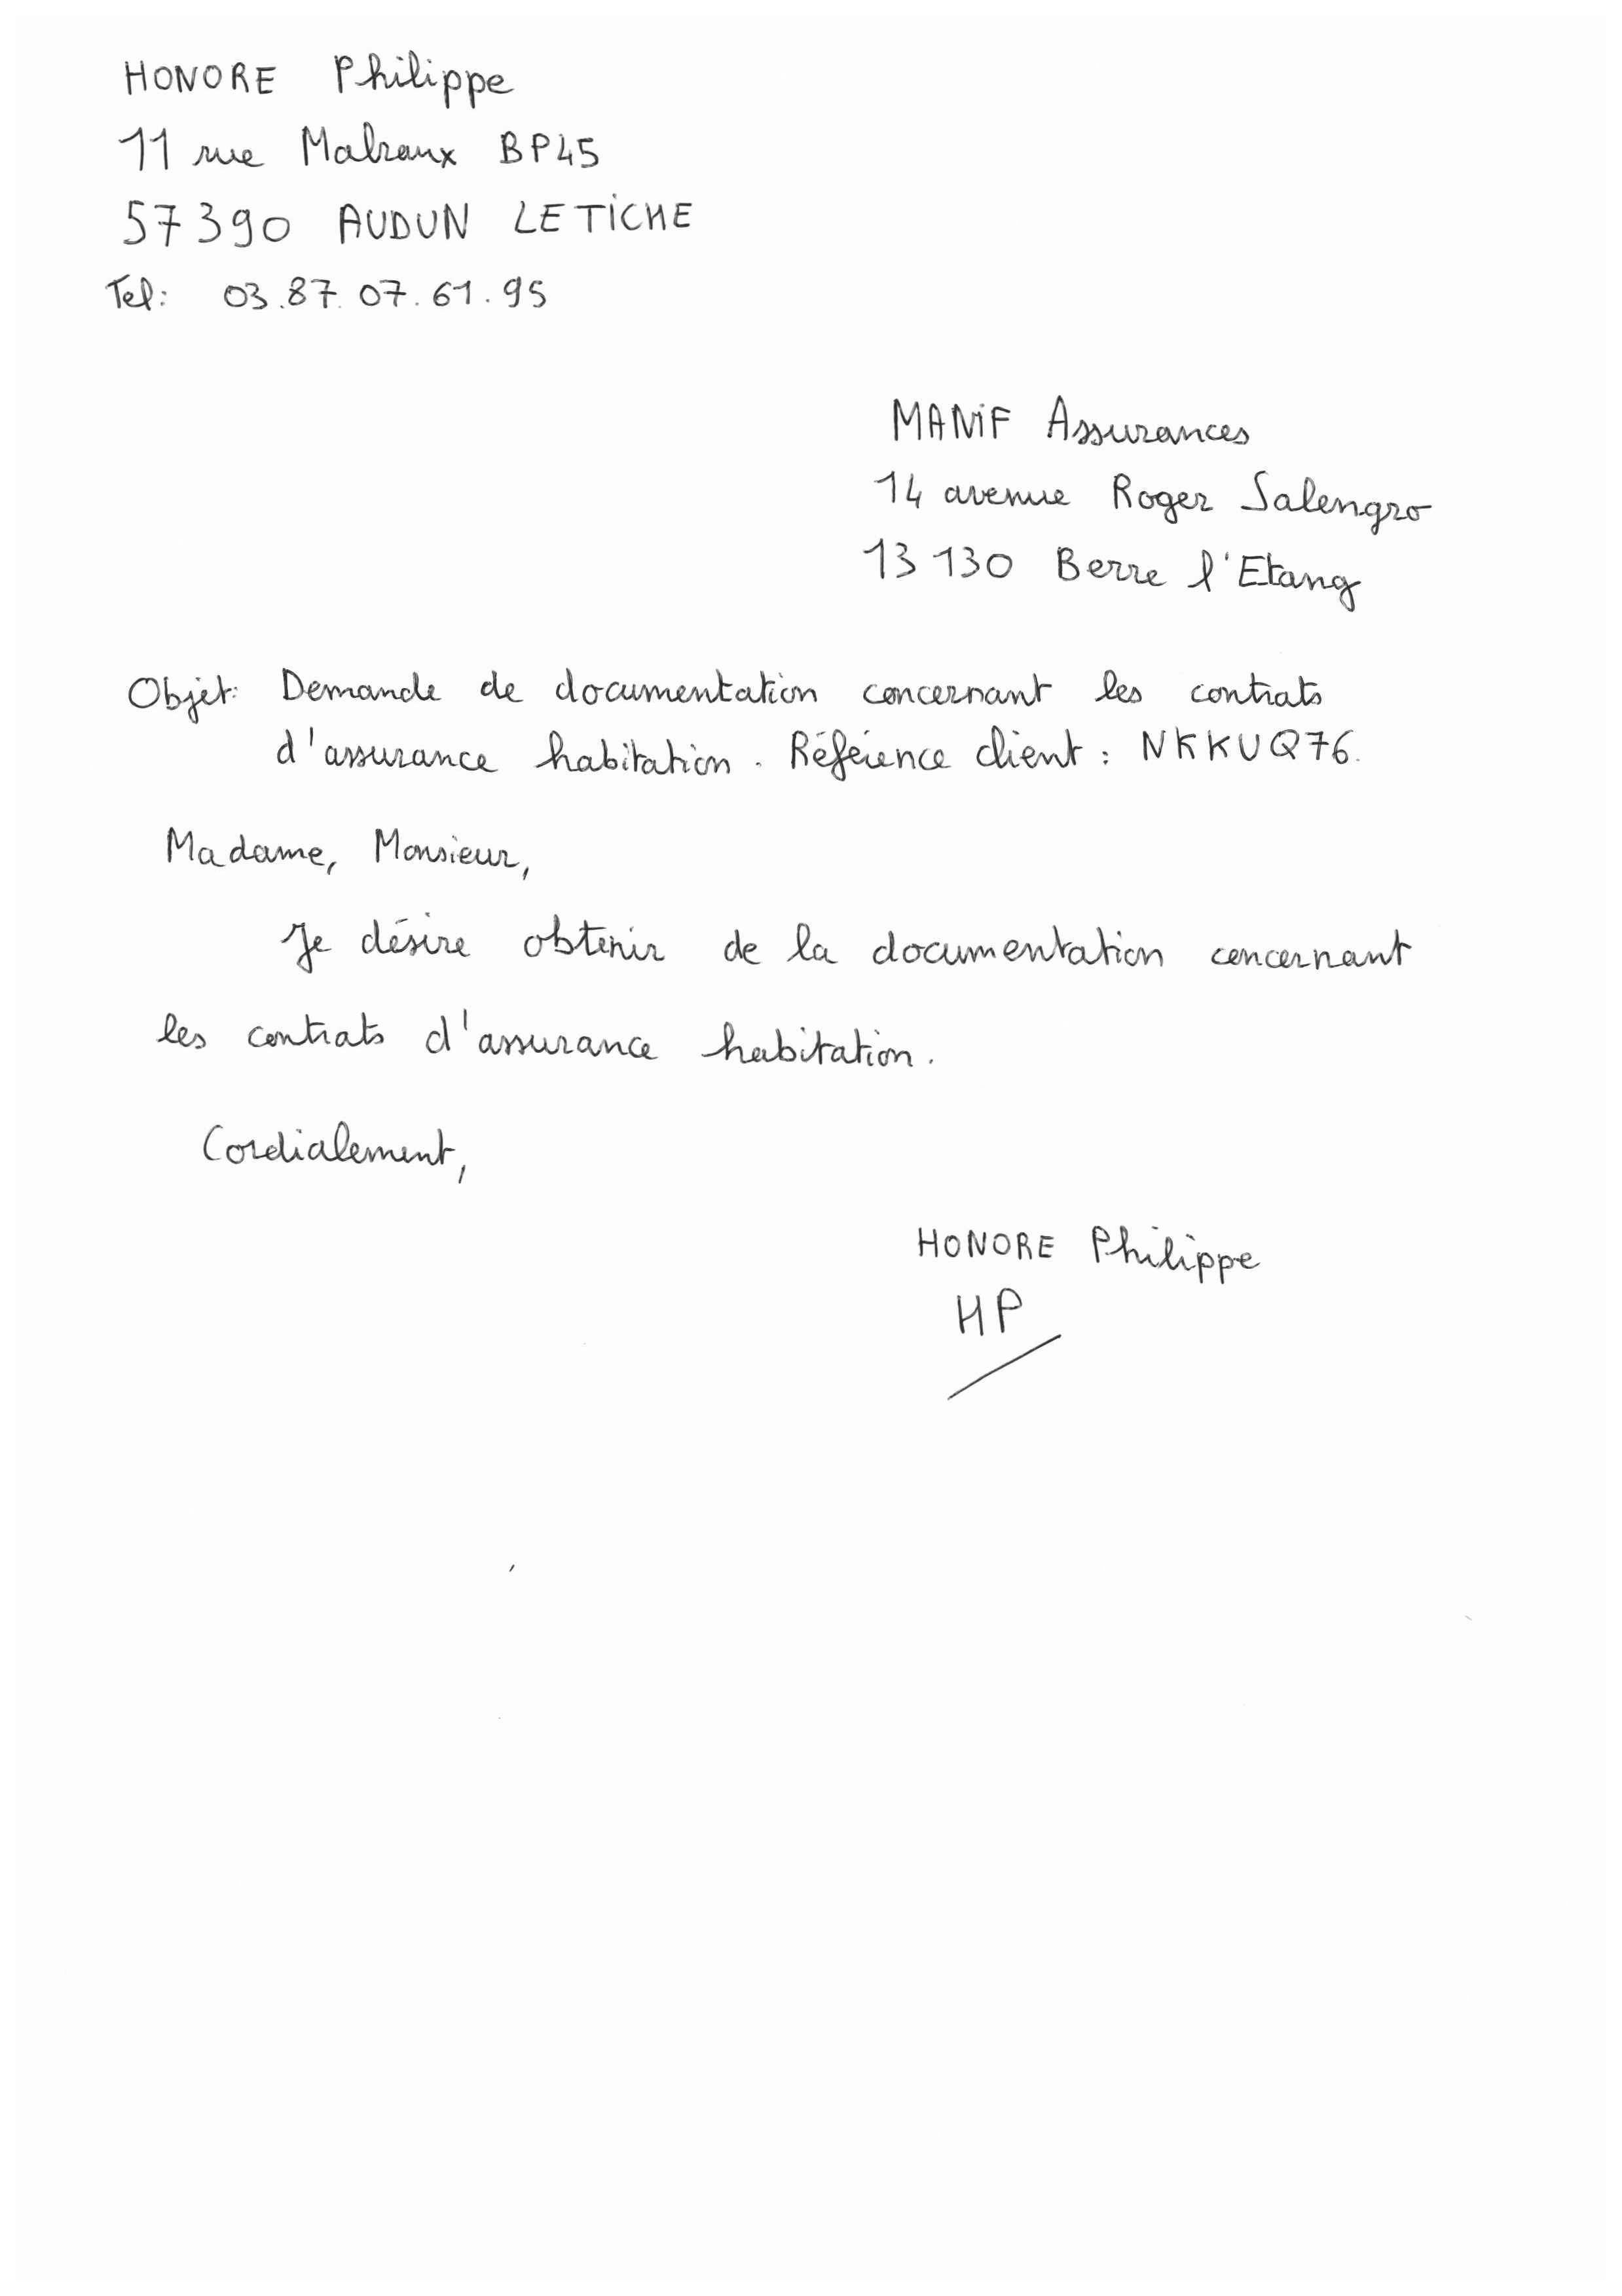 HONORE Philippe
11 rue Malraux BP45
57390 AUDUN LE TICHE
Tel: 03.87.07.61.95
MANIF Assurances
14 avenue Roger Salengro
13130 Berre l'Etang
Objet: Demande de documentation concernant les contrats
d'assurance habitation. Référence client : NKKUQ76.
Madame, Monsieur,
Je désire obtenir de la documentation concernant
les contrats d'assurance habitation.
Cordialement,
HONORE Philippe
HP